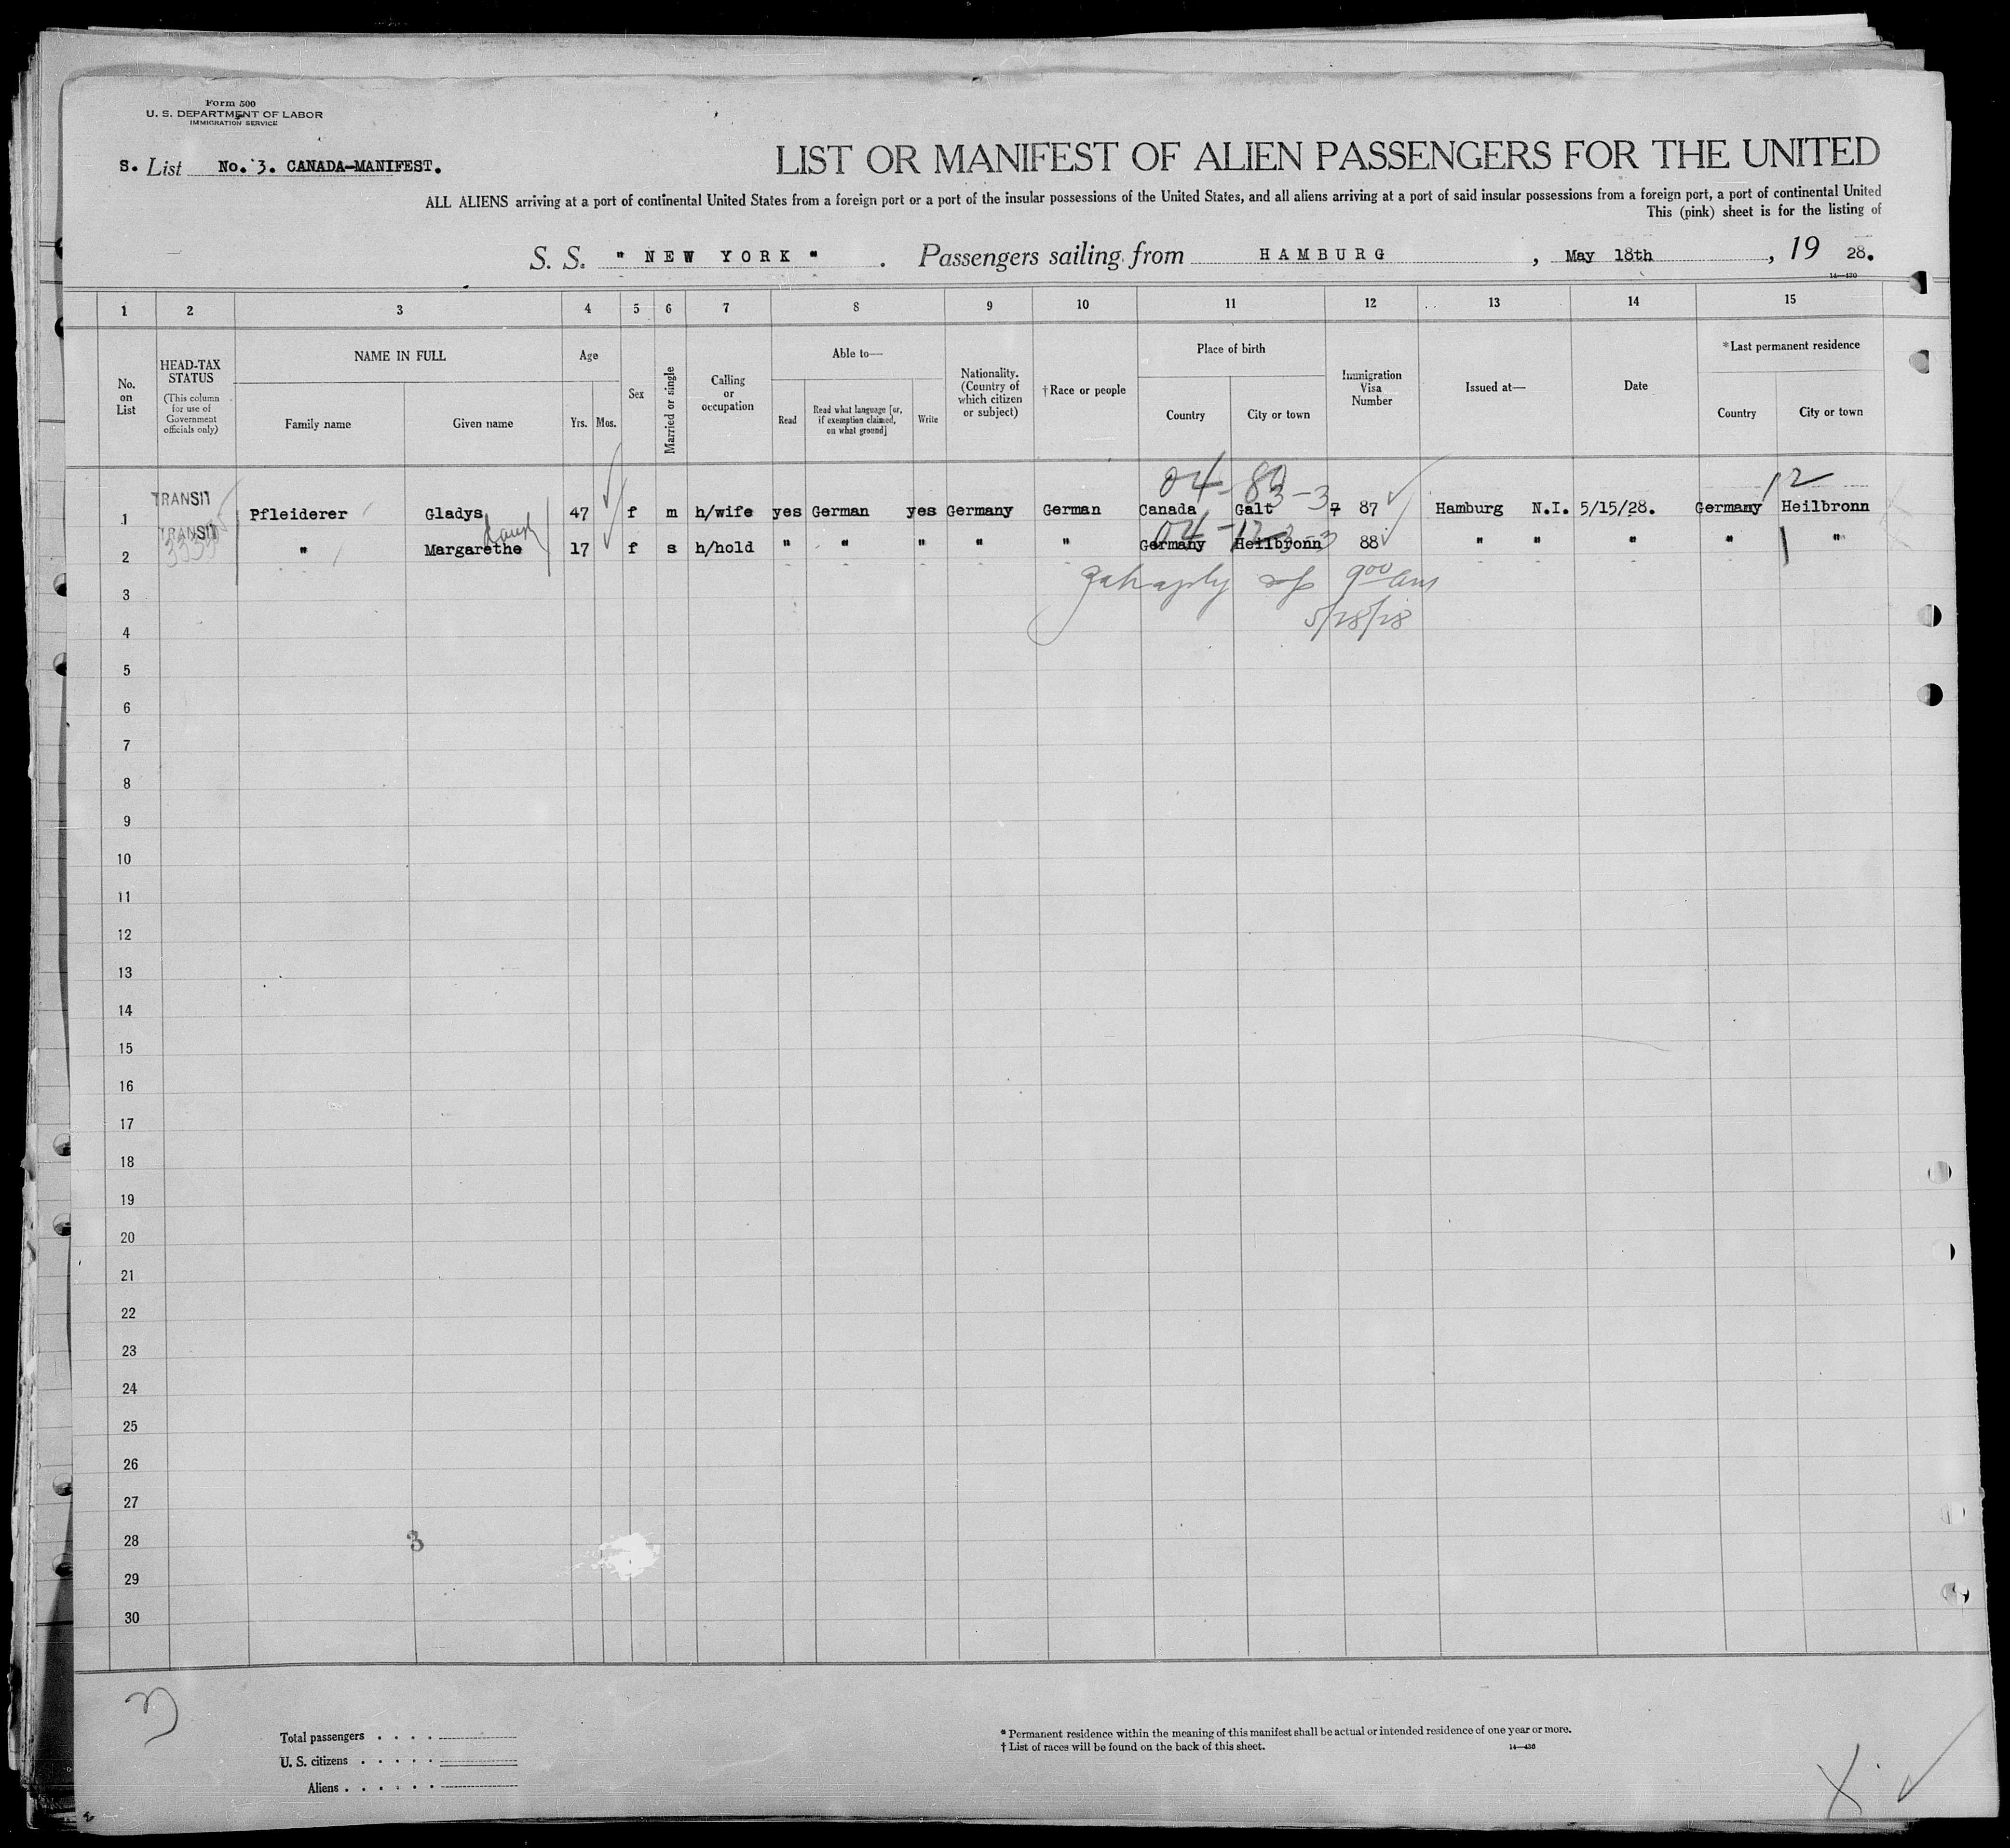 Form 500
U. S. DEPARTMENT OF LABOR
IMMIGRATION SERVICE
S. List No. 3. CANADA-MANIFEST.
LIST OR MANIFEST OF ALIEN PASSENGERS FOR THE UNITED
ALL ALIENS arriving at a port of continental United States from a foreign port or a port of the insular possessions of the United States, and all aliens arriving at a port of said insular possessions from a foreign port, a port of continental United
This (pink) sheet is for the listing of
S. S. " NEW YORK " . Passengers sailing from HAMBURG , May 18th , 19 28.
14—430
1 2 3 4 5 6 7 8 9 10 11 12 13 14 15
No. on List
HEAD-TAX STATUS
(This column for use of Government officials only)
NAME IN FULL
Family name Given name
Age
Yrs. Mos.
Sex
Married or single
Calling or occupation
Able to—
Read
Read what language [or, if exemption claimed, on what ground]
Write
Nationality. (Country of which citizen or subject)
† Race or people
Place of birth
Country City or town
Immigration Visa Number
Issued at—
Date
* Last permanent residence
Country City or town
04-80 12
3-3
1 TRANSIT Pfleiderer Gladys 47 f m h/wife yes German yes Germany German Canada Galt 7 87 Hamburg N.I. 5/15/28. Germany Heilbronn
daug 04-12 3-3
2 TRANSIT " Margarethe 17 f s h/hold " " " " " Germany Heilbronn 88 " " " " "
3
5/28/28
4
5
6
7
8
9
10
11
12
13
14
15
16
17
18
19
20
21
22
23
24
25
26
27
28 3
29
30
Total passengers . . . .
U. S. citizens . . . . .
Aliens . . . . . .
* Permanent residence within the meaning of this manifest shall be actual or intended residence of one year or more.
† List of races will be found on the back of this sheet.
14—430